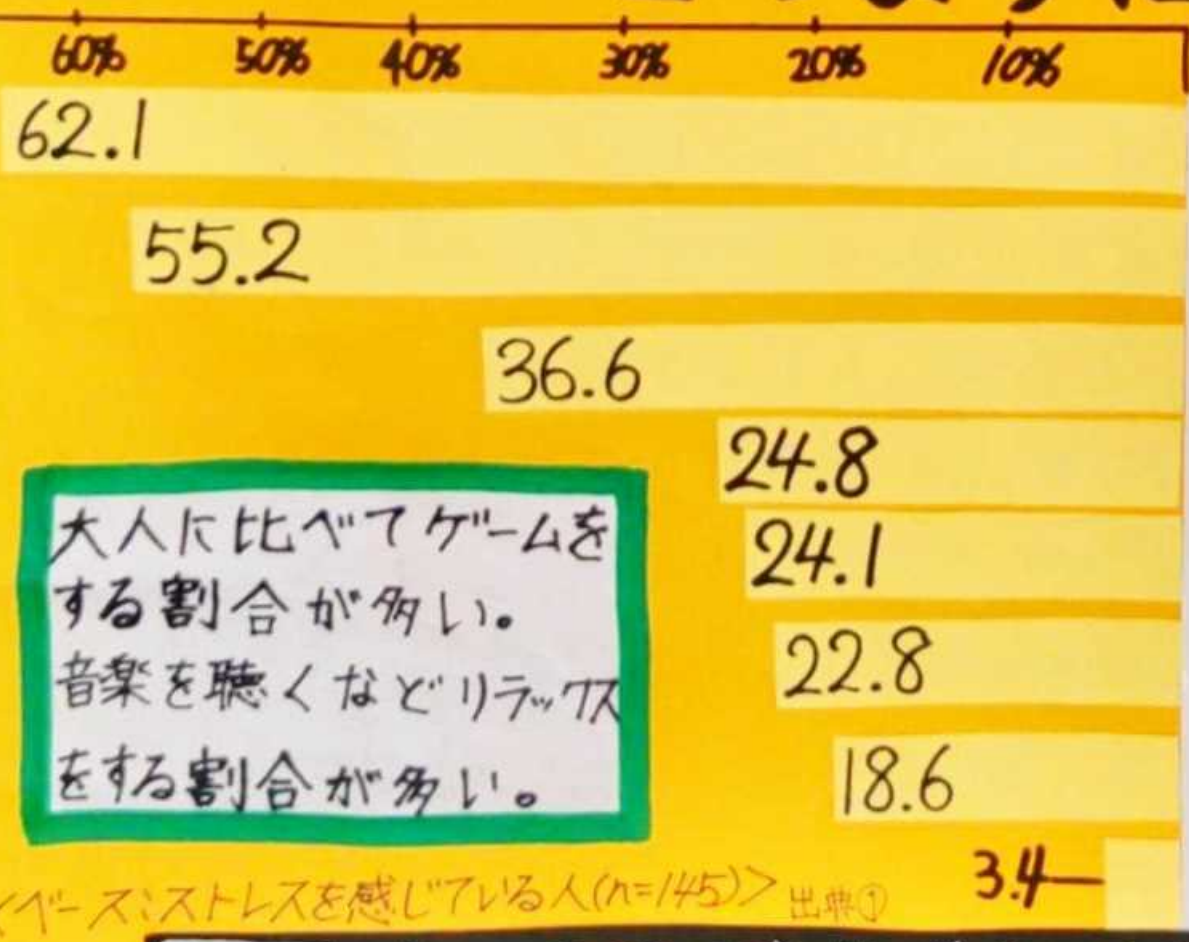 60% 50% 40% 30% 20% 10%
62.1
55.2
36.6
24.8
24.1
22.8
18.6
3.4
大人に比べてゲームを
する割合が多い。
音楽を聴くなどリラックス
をする割合が多い。
<ベース:ストレスを感じている人(n=145)> 出典①